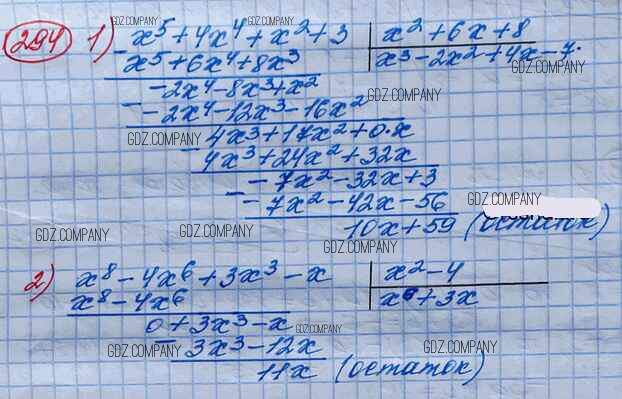 294 1) x⁵+4x⁴+x²+3 | x²+6x+8
x⁵+6x⁴+8x³ | x³-2x²+4x-7.
-2x⁴-8x³+x²
-2x⁴-12x³-16x²
4x³+17x²+0·x
4x³+24x²+32x
-7x²-32x+3
-7x²-42x-56
10x+59 (остаток)
2) x⁸-4x⁶+3x³-x | x²-4
x⁸-4x⁶ | x⁶+3x
0+3x³-x
3x³-12x
11x (остаток)
GDZ.COMPANY
GDZ.COMPANY
GDZ.COMPANY
GDZ.COMPANY
GDZ.COMPANY
GDZ.COMPANY
GDZ.COMPANY
GDZ.COMPANY
GDZ.COMPANY
GDZ.COMPANY
GDZ.COMPANY
GDZ.COMPANY